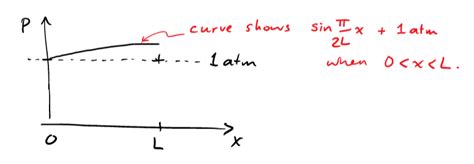 P
curve shows sin π/2L x + 1 atm
when 0 < x < L.
1 atm
0 L x